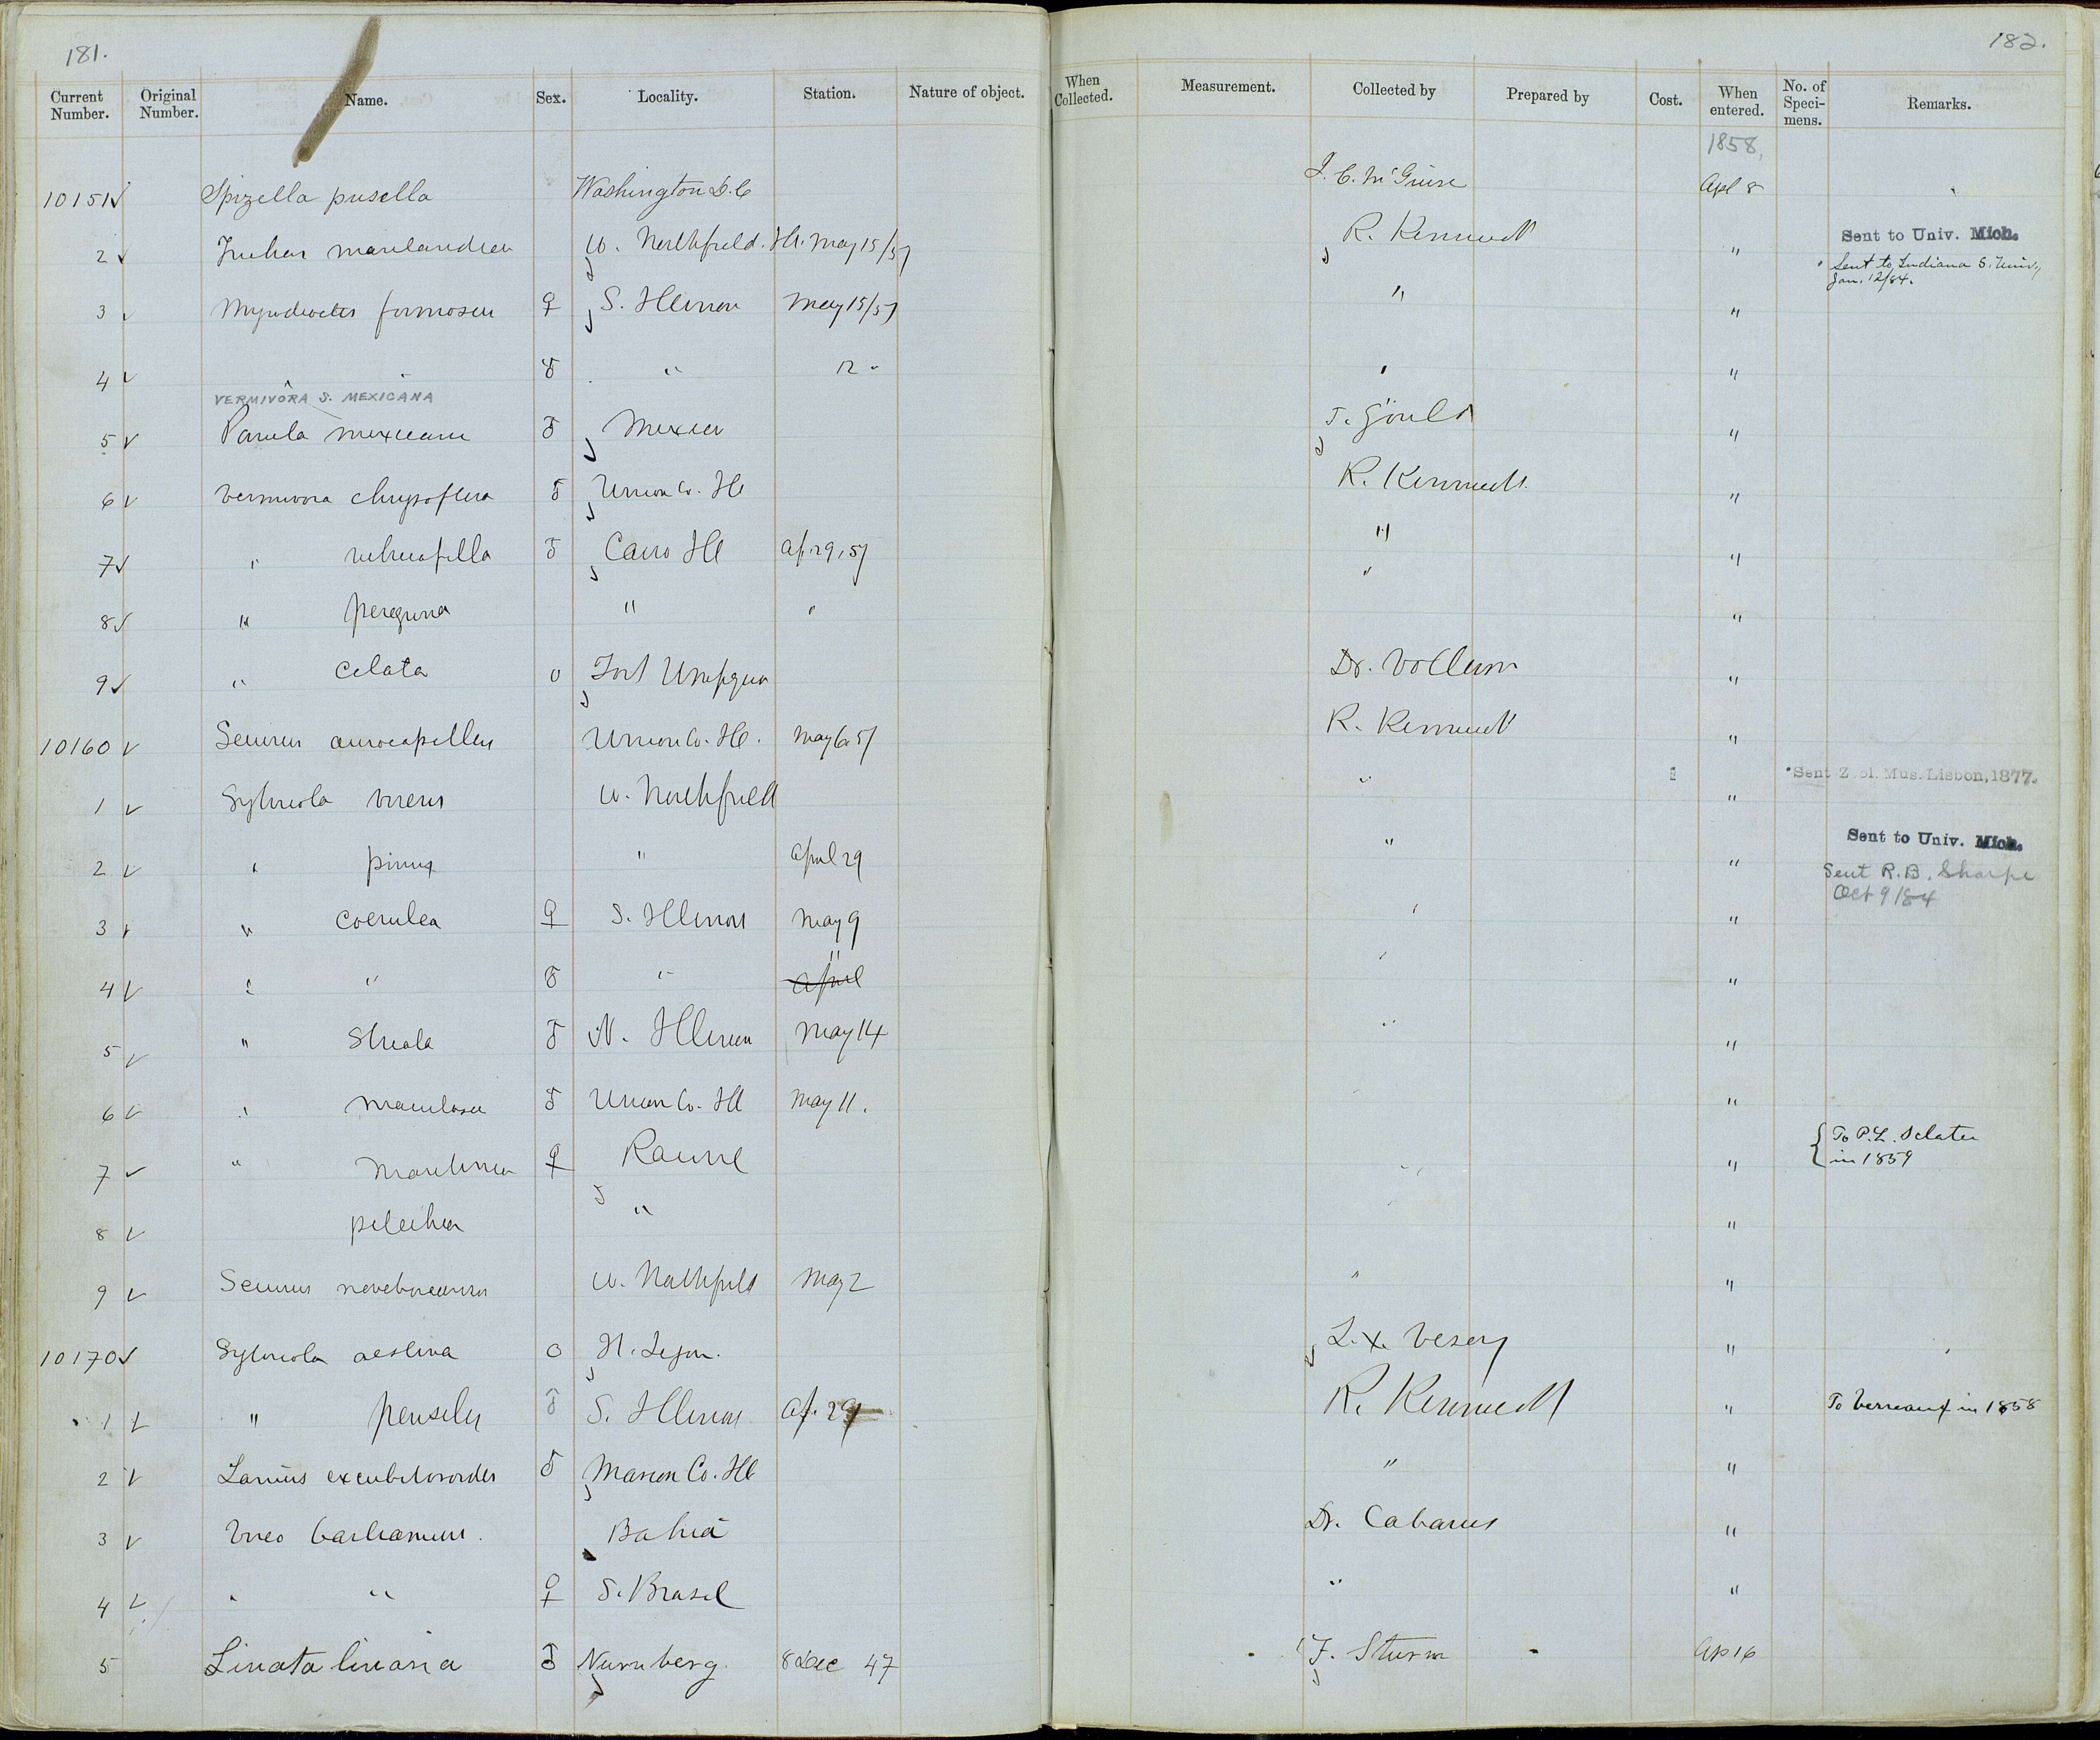 181.
182.
Current Number. Original Number. Name. Sex. Locality. Station. Nature of object. When Collected. Measurement. Collected by Prepared by Cost. When entered. No. of Specimens. Remarks.
1858,
10151 ✓ Spizella pusilla Washington D.C J. C. McGuire Apl 8
2 ✓ W. Northfield. Ill. May 15/57 R. Kennicott " Sent to Univ. Mich.
Sent to Indiana S. Univ., Jan. 12/84.
3 ✓ Myiodioctes formosa ♀ S. Illinois May 15/57 " "
4 ✓ " ♂ " 12 " " "
VERMIVORA S. MEXICANA
5 ✓ Parula mexicana ♂ Mexico J. Gould "
6 ✓ Vermivora chrysoptera ♂ Union Co. Ill R. Kennicott "
7 ✓ " rubricapilla ♂ Cairo Ill Ap. 29, 57 " "
8 ✓ " peregrina " " " "
9 ✓ " celata Fort Umpqua Dr. Vollum "
10160 ✓ Seiurus aurocapillus Union Co. Ill. May 6. 57 R. Kennicott "
1 ✓ Sylvicola virens W. Northfield " " Sent Zool. Mus. Lisbon, 1877.
2 ✓ " pinus " April 29 " " Sent to Univ. Mich.
Sent R. B. Sharpe
Oct 9/84
3 ✓ " coerulea ♀ S. Illinois May 9 " "
4 ✓ " " ♂ " " April " "
5 ✓ " striata ♂ N. Illinois May 14 " "
6 ✓ " maculosa ♂ Union Co. Ill May 11. "
7 ✓ " maritima ♀ Racine " " { To P. L. Sclater
in 1859
8 ✓ " "
9 ✓ Seiurus noveboracensis W. Northfield May 2 " "
10170 ✓ Sylvicola aestiva "
1 ✓ " pensilis ♂ S. Illinois Ap. 29 R. Kennicott " To Verreaux in 1858
2 ✓ Lanius excubitoroides ♂ Marion Co. Ill " "
3 ✓ Vireo Bahia Dr. Cabanis "
4 ✓ " " ♀ S. Brasil " "
5 Linota linaria ♂ Nurnberg 8 Dec 47 F. Sturm Ap 16